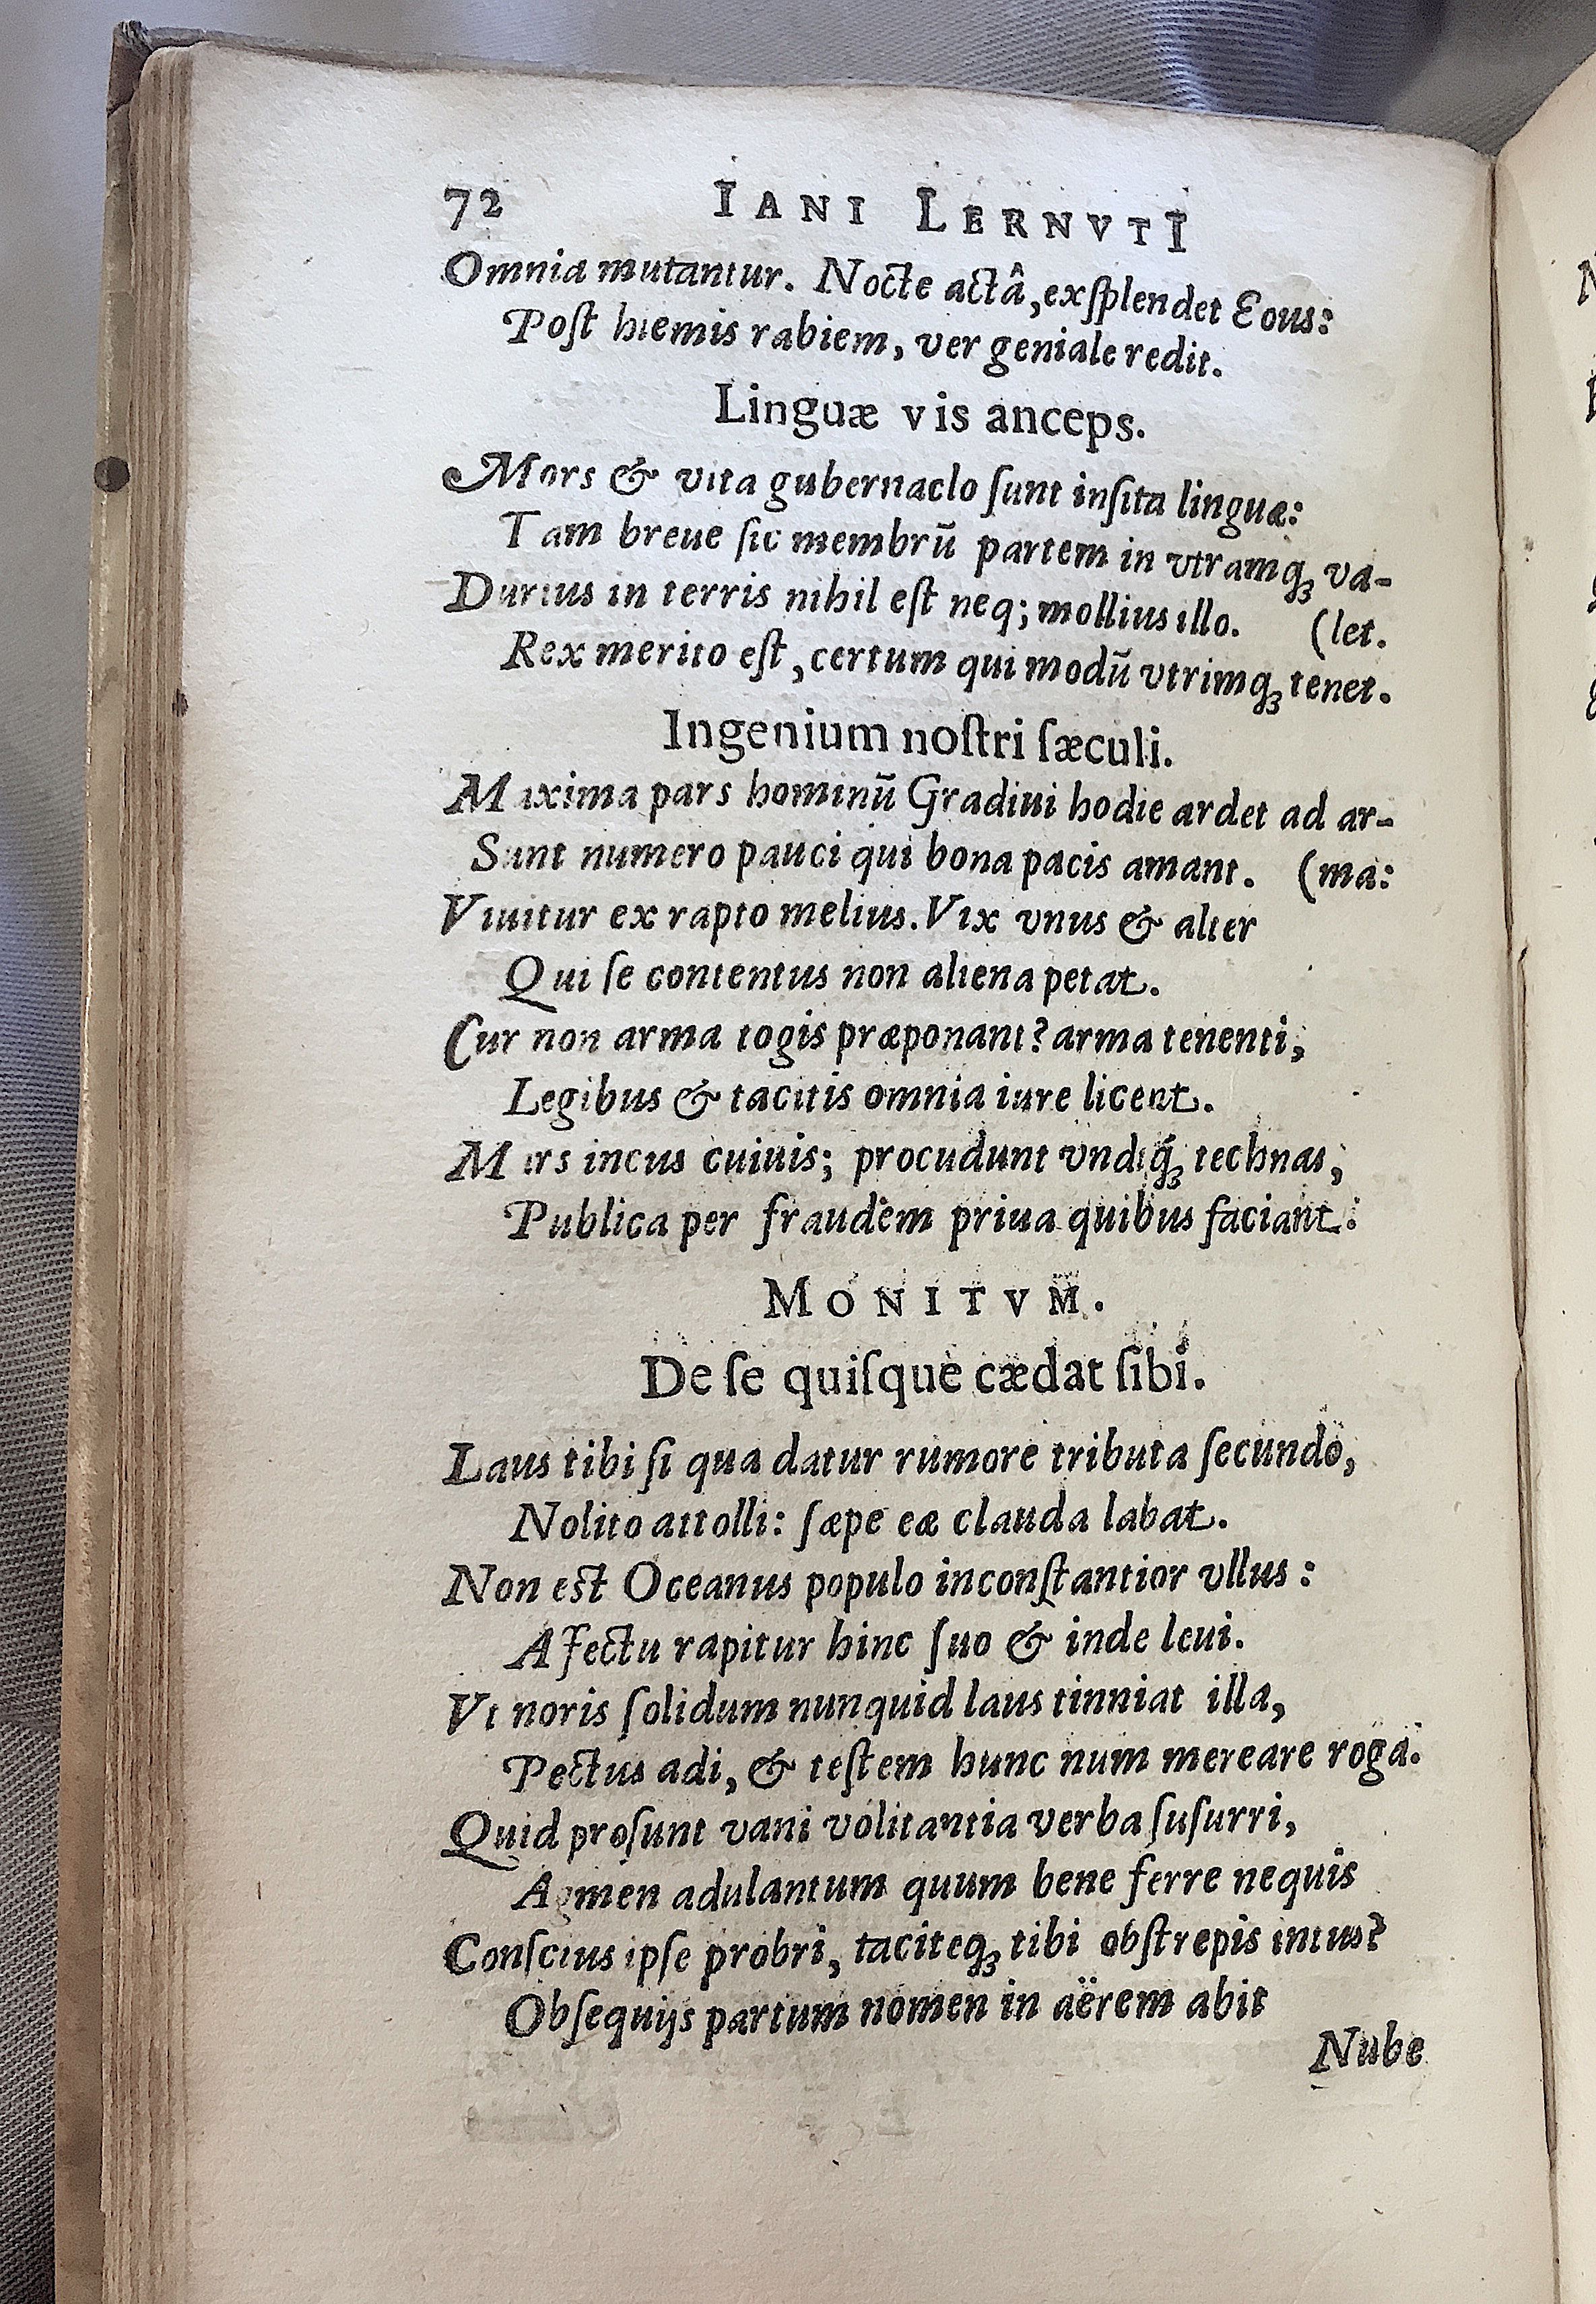 72 IANI LERNVTI
Omnia mutantur. Nocte actâ, exſplendet Eous:
Poſt hiemis rabiem, ver geniale redit.
Linguæ vis anceps.
Mors & vita gubernaclo ſunt inſita linguæ:
Tam breue ſic membrū partem in vtramq; va-
Durius in terris nihil eſt neq; mollius illo. (let.
Rex merito eſt, certum qui modū vtrimq; tenet.
Ingenium noſtri ſæculi.
Maxima pars hominū Gradiui hodie ardet ad ar-
Sunt numero pauci qui bona pacis amant. (ma:
Viuitur ex rapto melius. Vix vnus & alter
Qui ſe contentus non aliena petat.
Cur non arma togis præponant? arma tenenti,
Legibus & tacitis omnia iure licent.
Mars incus cuiuis; procudunt vndiq́; technas,
Publica per fraudem priua quibus faciant.
MONITVM.
De ſe quiſque cædat ſibi.
Laus tibi ſi qua datur rumore tributa ſecundo,
Nolito attolli: ſæpe eæ clauda labat.
Non eſt Oceanus populo inconſtantior vllus:
Affectu rapitur hinc ſuo & inde leui.
Vt noris ſolidum nunquid laus tinniat illa,
Pectus adi, & teſtem hunc num mereare roga.
Quid proſunt vani volitantia verba ſuſurri,
Agmen adulantum quum bene ferre nequis
Conſcius ipſe probri, taciteq; tibi obſtrepis intus?
Obſequijs partum nomen in aërem abit
Nube